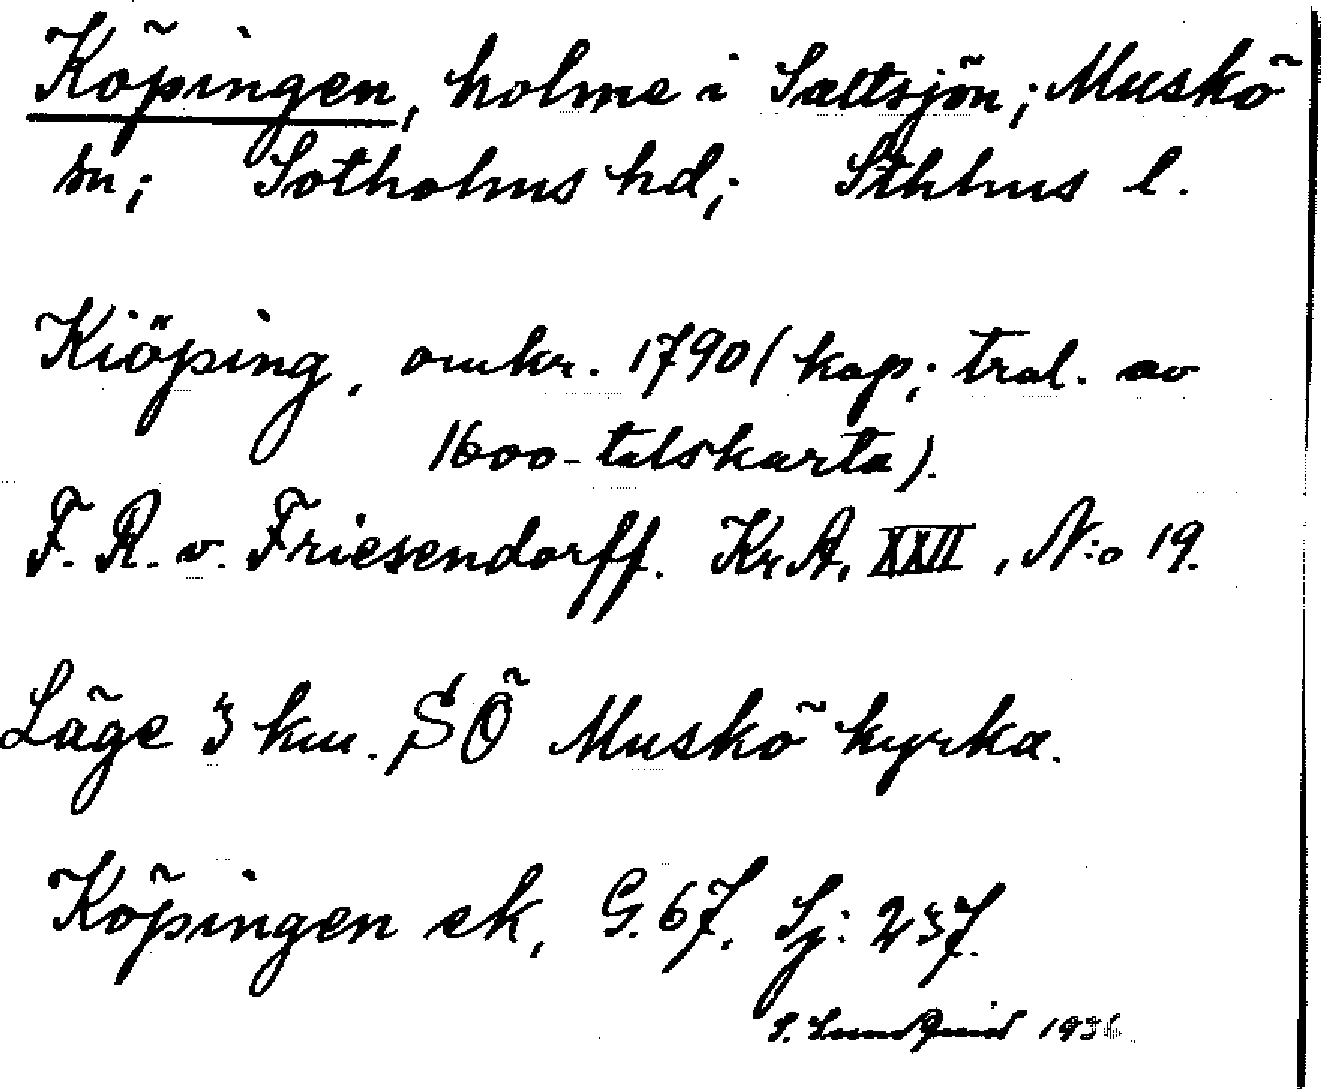 Köpingen, holme i Saltsjön; Muskö
sn; Sotholms hd; Sthlms l.
Kiöping, omkr. 1790 (kop; trol. av
1600-talskarta).
F. R. v. Friesendorff. Kr.A. XXII, N:o 19.
Läge 3 km. SÖ Muskö kyrka.
Köpingen ek, G. 67. Sj: 237.
S. Lundqvist 1936